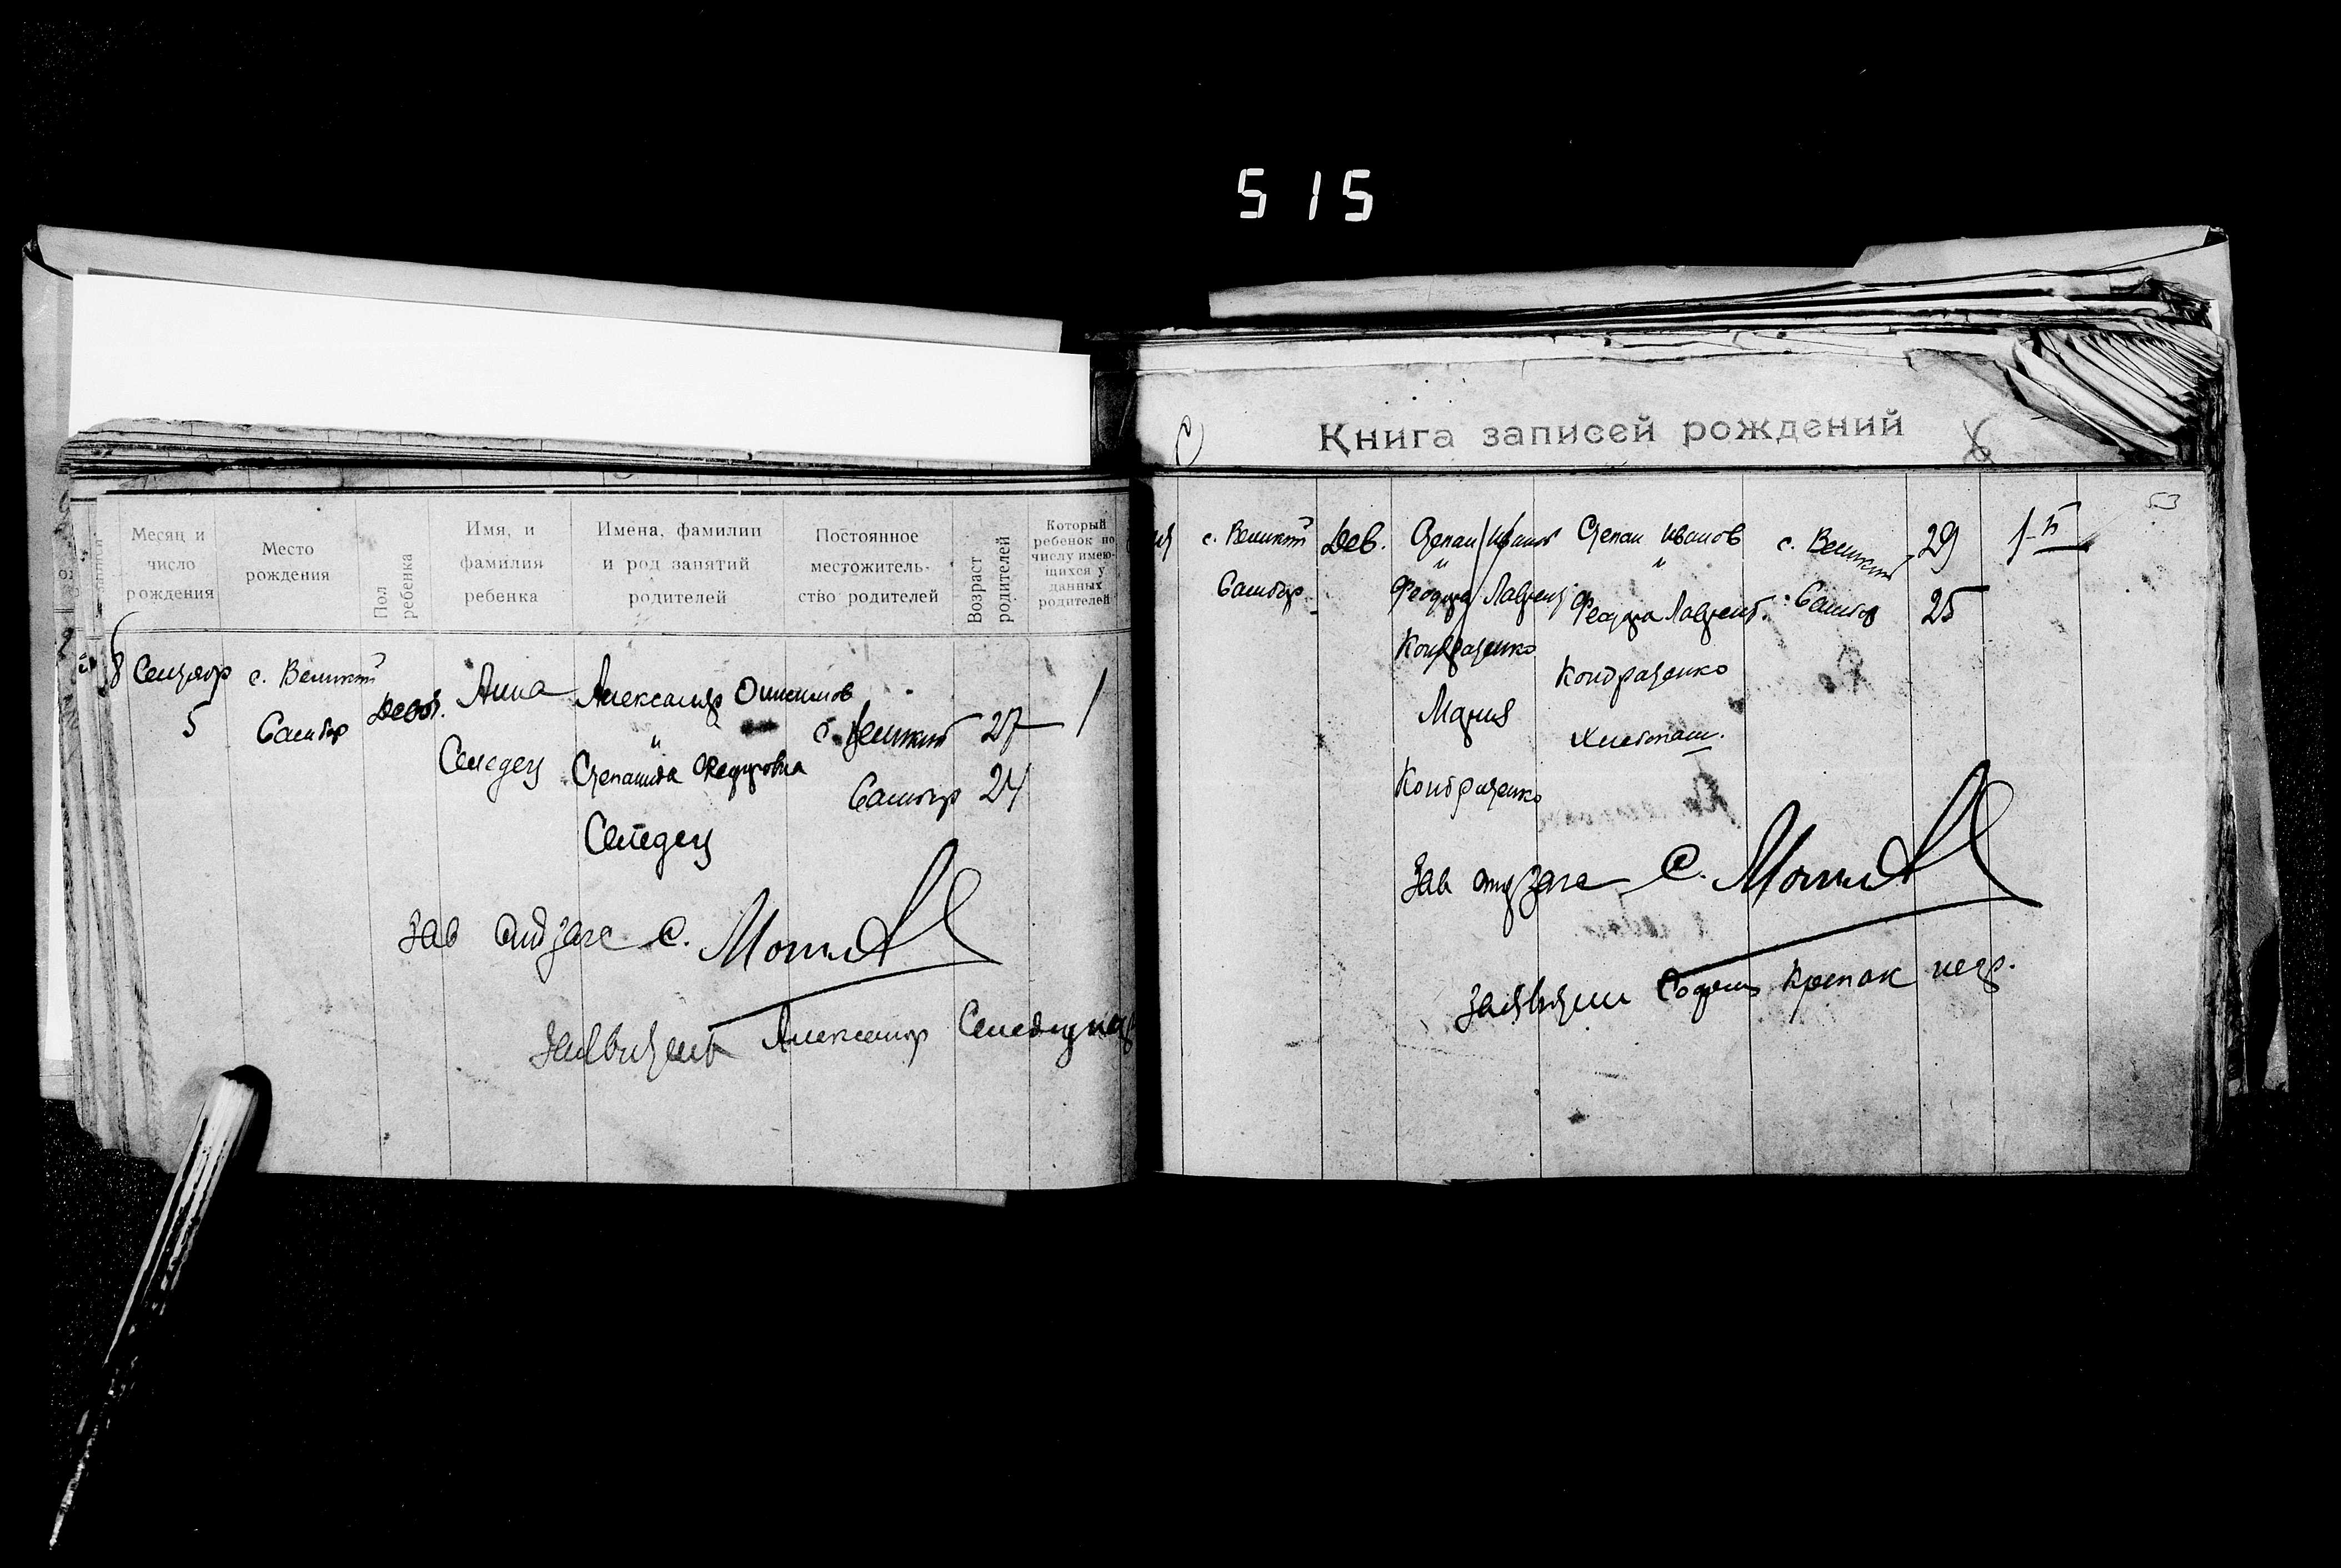 515
Месяц и число рождения
Место рождения
Пол ребенка
Имя, и фамилия ребенка
Имена, фамилии и род занятий родителей
Постоянное местожительство родителей
Возраст родителей
Который ребенок по числу имеющихся у данных родителей
8 Сентябр
5
с. Великий
Самбор
Девоч.
Анна
Селедец
Александр Онисимов
и
Степанида Федоровна
Селедец
с. Великий
Самбор
27
24
1
Зав подзагс С.
Заявитель Александр
Книга записей рождений
53
с. Великий
Самбор
Дев.
Степан Иванов
и
Феодора Лаврент
Кондратенко
Мария
Кондратенко
Степан Иванов
и
Феодора Лаврент.
Кондратенко
Хлебопаш.
с. Великий
Самбор
29
25
1-й
Зав подзагс С.
Заявители Крепак негр.